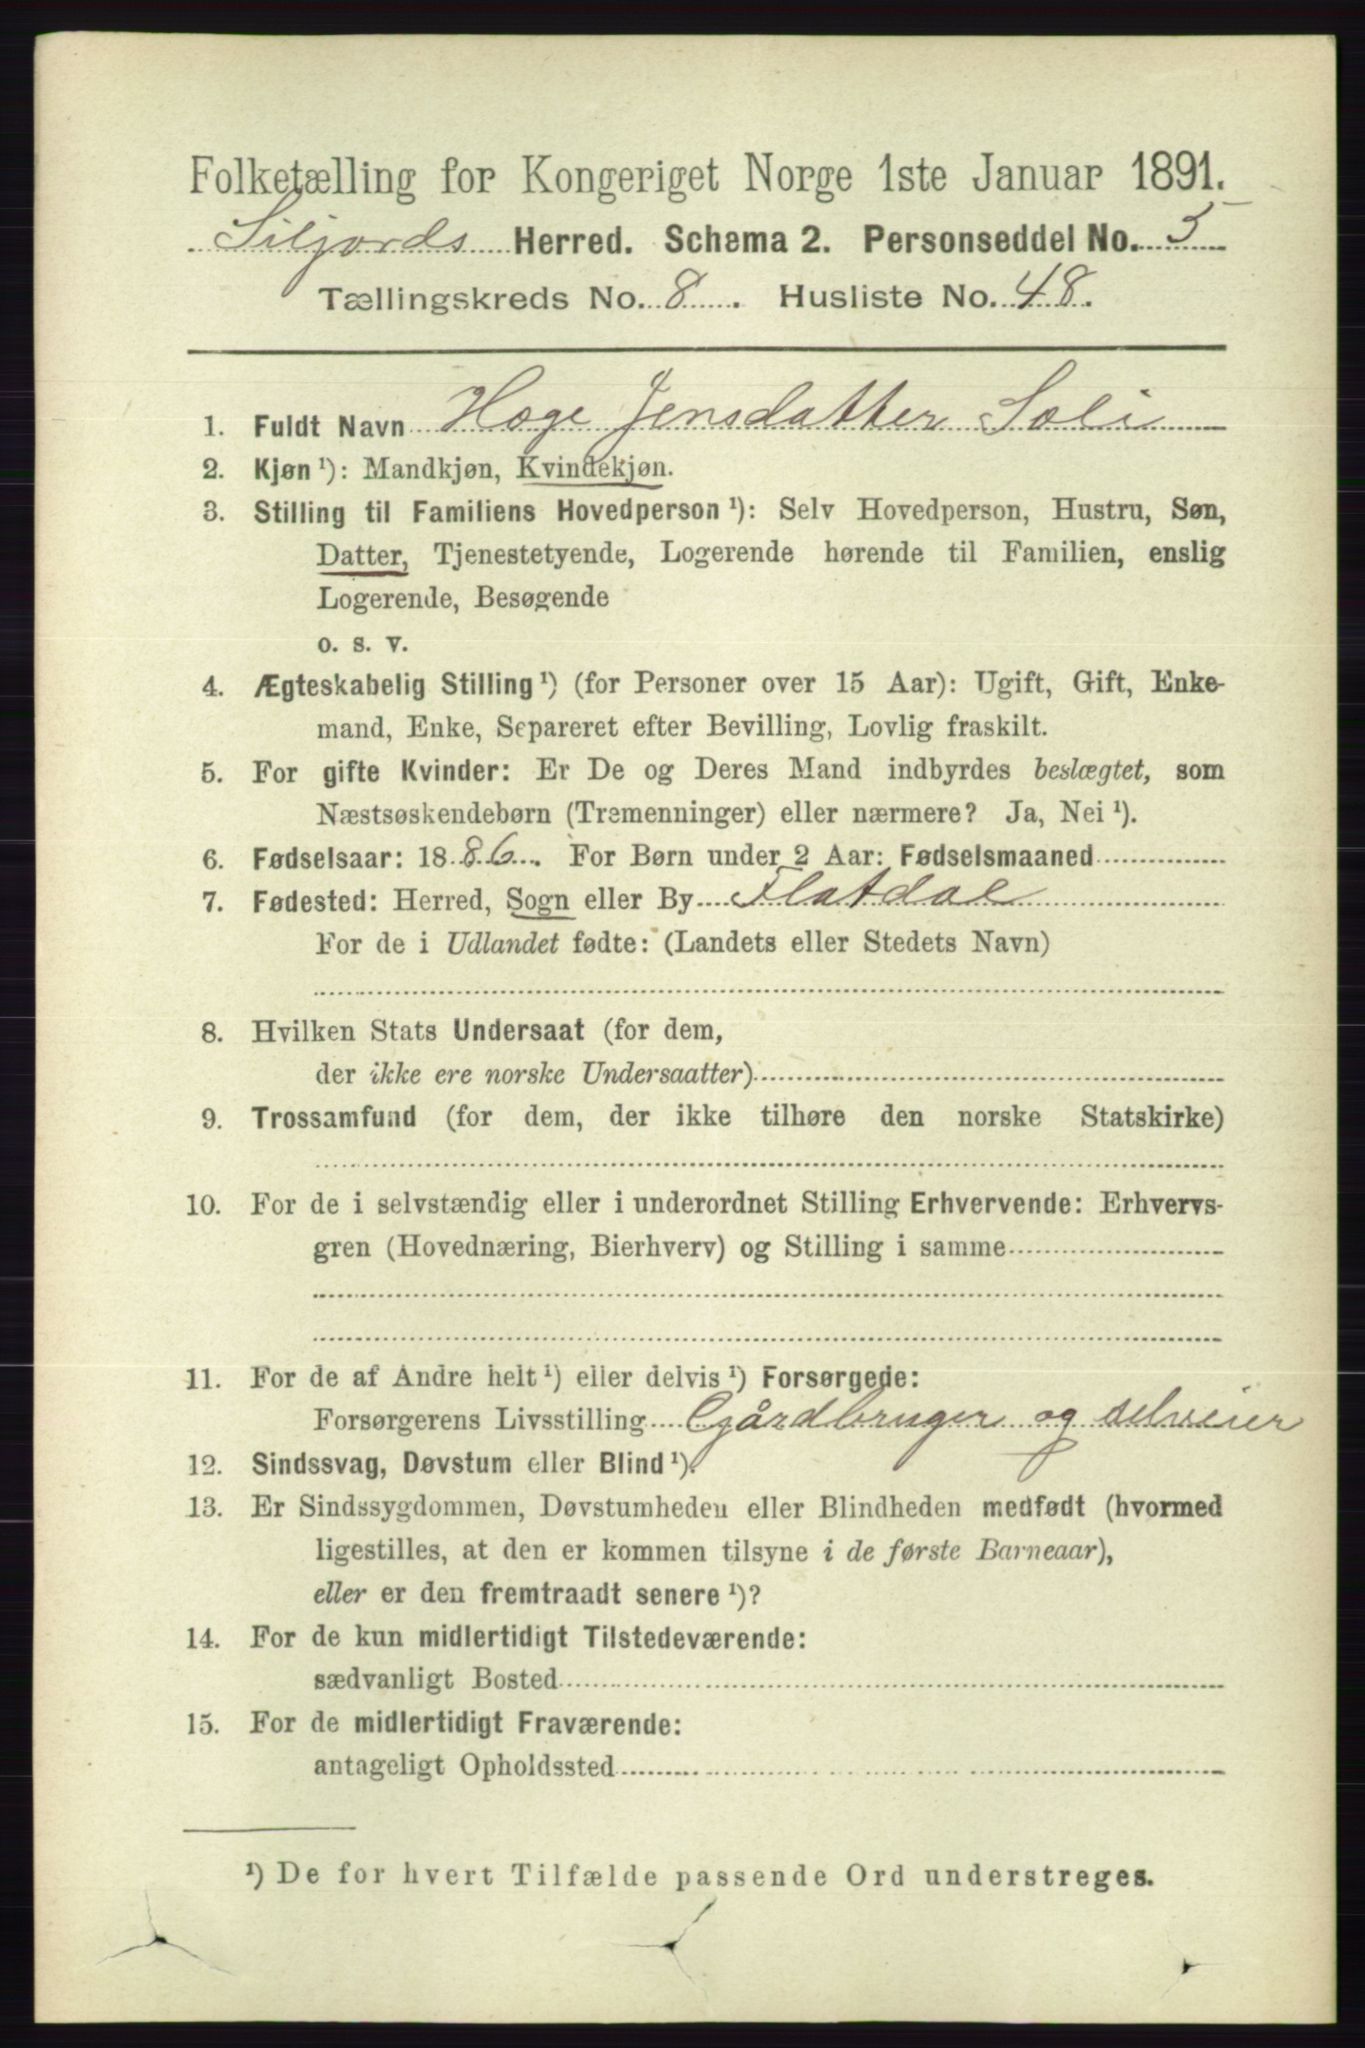 Folketælling for Kongeriget Norge 1ste Januar 1891.
Siljords Herred. Schema 2. Personseddel No. 5
Tællingskreds No. 8. Husliste No. 48.
1. Fuldt Navn Hæge Jensdatter Soli
2. Kjøn ¹): Mandkjøn, Kvindekjøn.
3. Stilling til Familiens Hovedperson ¹): Selv Hovedperson, Hustru, Søn,
Datter, Tjenestetyende, Logerende hørende til Familien, enslig
Logerende, Besøgende
o. s. v.
4. Ægteskabelig Stilling ¹) (for Personer over 15 Aar): Ugift, Gift, Enke-
mand, Enke, Separeret efter Bevilling, Lovlig fraskilt.
5. For gifte Kvinder: Er De og Deres Mand indbyrdes beslægtet, som
Næstsøskendebørn (Tremenninger) eller nærmere? Ja, Nei ¹).
6. Fødselsaar: 1886. For Børn under 2 Aar: Fødselsmaaned
7. Fødested: Herred, Sogn eller By Flatdal
For de i Udlandet fødte: (Landets eller Stedets Navn)
8. Hvilken Stats Undersaat (for dem,
der ikke ere norske Undersaatter)
9. Trossamfund (for dem, der ikke tilhøre den norske Statskirke)
10. For de i selvstændig eller i underordnet Stilling Erhvervende: Erhvervs-
gren (Hovednæring, Bierhverv) og Stilling i samme
11. For de af Andre helt ¹) eller delvis ¹) Forsørgede:
Forsørgerens Livsstilling Gårdbruger og selveier
12. Sindssvag, Døvstum eller Blind ¹).
13. Er Sindssygdommen, Døvstumheden eller Blindheden medfødt (hvormed
ligestilles, at den er kommen tilsyne i de første Barneaar),
eller er den fremtraadt senere ¹)?
14. For de kun midlertidigt Tilstedeværende:
sædvanligt Bosted
15. For de midlertidigt Fraværende:
antageligt Opholdssted
¹) De for hvert Tilfælde passende Ord understreges.